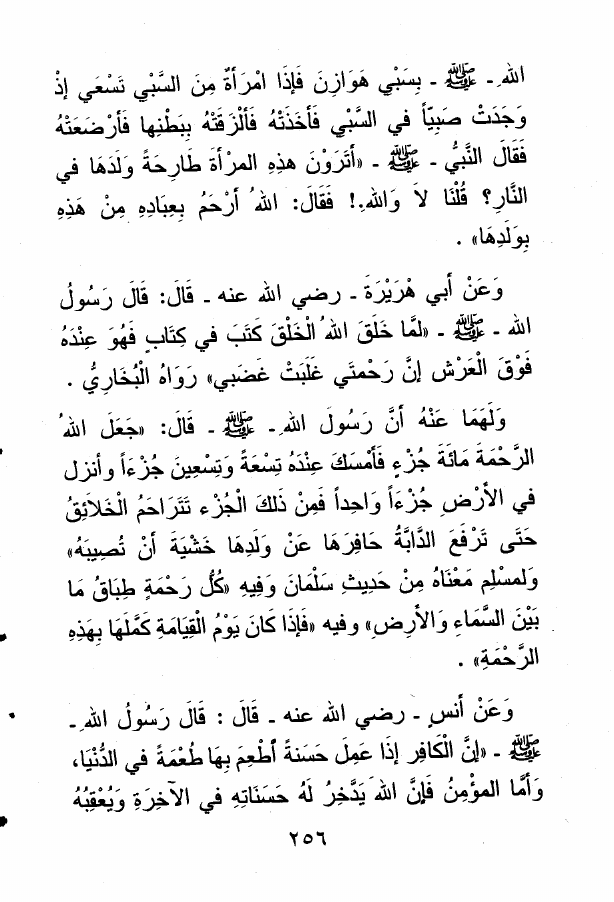 اللهِ ـ ﷺ ـ بِسَبْيِ هَوَازِنَ فَإِذَا امْرَأَةٌ مِنَ السَّبْيِ تَسْعَي إذْ
وَجَدَتْ صَبِيّاً في السَّبْيِ فَأخَذَتْهُ فَألْزَقَتْهُ بِبَطْنِها فَأرْضَعَتْهُ
فَقَالَ النَّبيُّ ـ ﷺ ـ «أتَرَوْنَ هذِهِ المرْأةَ طَارِحَةً وَلَدَهَا في
النَّارِ؟ قُلْنَا لاَ وَاللهِ! فَقَالَ: اللهُ أرْحَمُ بِعِبَادِهِ مِنْ هَذِهِ
بِوَلَدِهَا» .
وَعَنْ أبي هْرَيْرَةَ ـ رضي الله عنه ـ قَالَ: قَالَ رَسُولُ
الله ـ ﷺ ـ «لمَّا خَلَقَ اللهُ الْخَلْقَ كَتَبَ في كِتَابٍ فَهُوَ عِنْدَهُ
فَوْقَ الْعَرْش إنَّ رَحْمتَي غَلَبَتْ غَضَبي» رَوَاهُ الْبُخَارِيُّ .
وَلَهَما عَنْهُ أنَّ رَسُولَ اللهِ ـ ﷺ ـ قَالَ: «جَعَلَ اللهُ
الرَّحْمَةَ مَائَةَ جُزْءٍ فَأمْسَكَ عِنْدَهُ تِسْعَةً وَتِسْعِينَ جُزْءَاً وأنزل
في الأرْضِ جُزْءَاً وَاحِداً فَمِنْ ذَلكَ الْجُزْء تَتَرَاحَمُ الْخَلاَئِقُ
حَتَى تَرْفَعَ الدَّابَّةُ حَافِرَهَا عَنْ وَلَدِهَا خَشْيَةَ أنْ تُصِيبَهُ»
وَلمسْلِم مَعْنَاهُ مِنْ حَدِيثِ سَلْمَانَ وَفِيهِ «كُلُّ رَحْمَةٍ طِبَاقُ مَا
بَيْنَ السَّمَاءِ وَالأرِضِ» وفيه «فَإذَا كَانَ يَوْمُ الْقِيَامَةِ كَمَّلَهَا بِهَذِهِ
الرَّحْمَةِ» .
وَعَنْ أنَسٍ ـ رضي الله عنه ـ قَالَ : قَالَ رَسُولُ اللهِ ـ
ﷺ ـ «إنَّ الْكَافِر إذَا عَمِلَ حَسَنةً أطْعِمَ بِهَا طُعْمَةً في الدُّنْيَا،
وَأمَّا المؤْمِنُ فَإنَّ اللهَ يَدَّخِرُ لَهُ حَسَنَاتِهِ في الآخِرَةِ وَيُعْقِبُهُ
٢٥٦